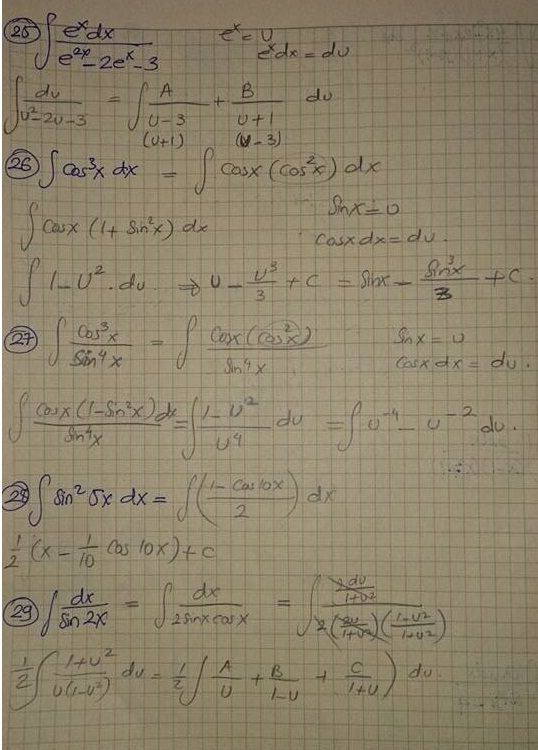 25 ∫ e^x dx / (e^2x - 2e^x - 3) e^x = u
e^x dx = du
∫ du / (u² - 2u - 3) = ∫ A / (u - 3) + B / (u + 1) du
(u+1) (u-3)
26 ∫ cos³x dx = ∫ cosx (cos²x) dx
∫ cosx (1 + sin²x) dx sinx = u
cosx dx = du.
∫ 1 - u² . du ⇒ u - u³/3 + c = sinx - sin³x/3 + c.
27 ∫ cos³x / sin⁴x = ∫ cosx (cos²x) / sin⁴x sinx = u
cosx dx = du.
∫ cosx (1 - sin²x) dx / sin⁴x = ∫ (1 - u²) / u⁴ du = ∫ u^-4 - u^-2 du.
28 ∫ sin² 5x dx = ∫ ((1 - cos10x) / 2) dx
1/2 (x - 1/10 cos 10x) + c
29 ∫ dx / sin 2x = ∫ dx / (2 sinx cosx) = ∫ (2du / (1+u²)) / (2 (2u / (1+u²)) ((1-u²) / (1+u²)))
1/2 ∫ (1+u²) / (u(1-u²)) du = 1/2 ∫ A/u + B/(1-u) + C/(1+u) ) du.